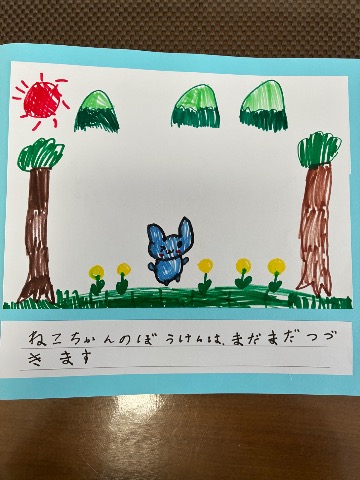 ねこちゃんのぼうけんは、まだまだつづ
きます